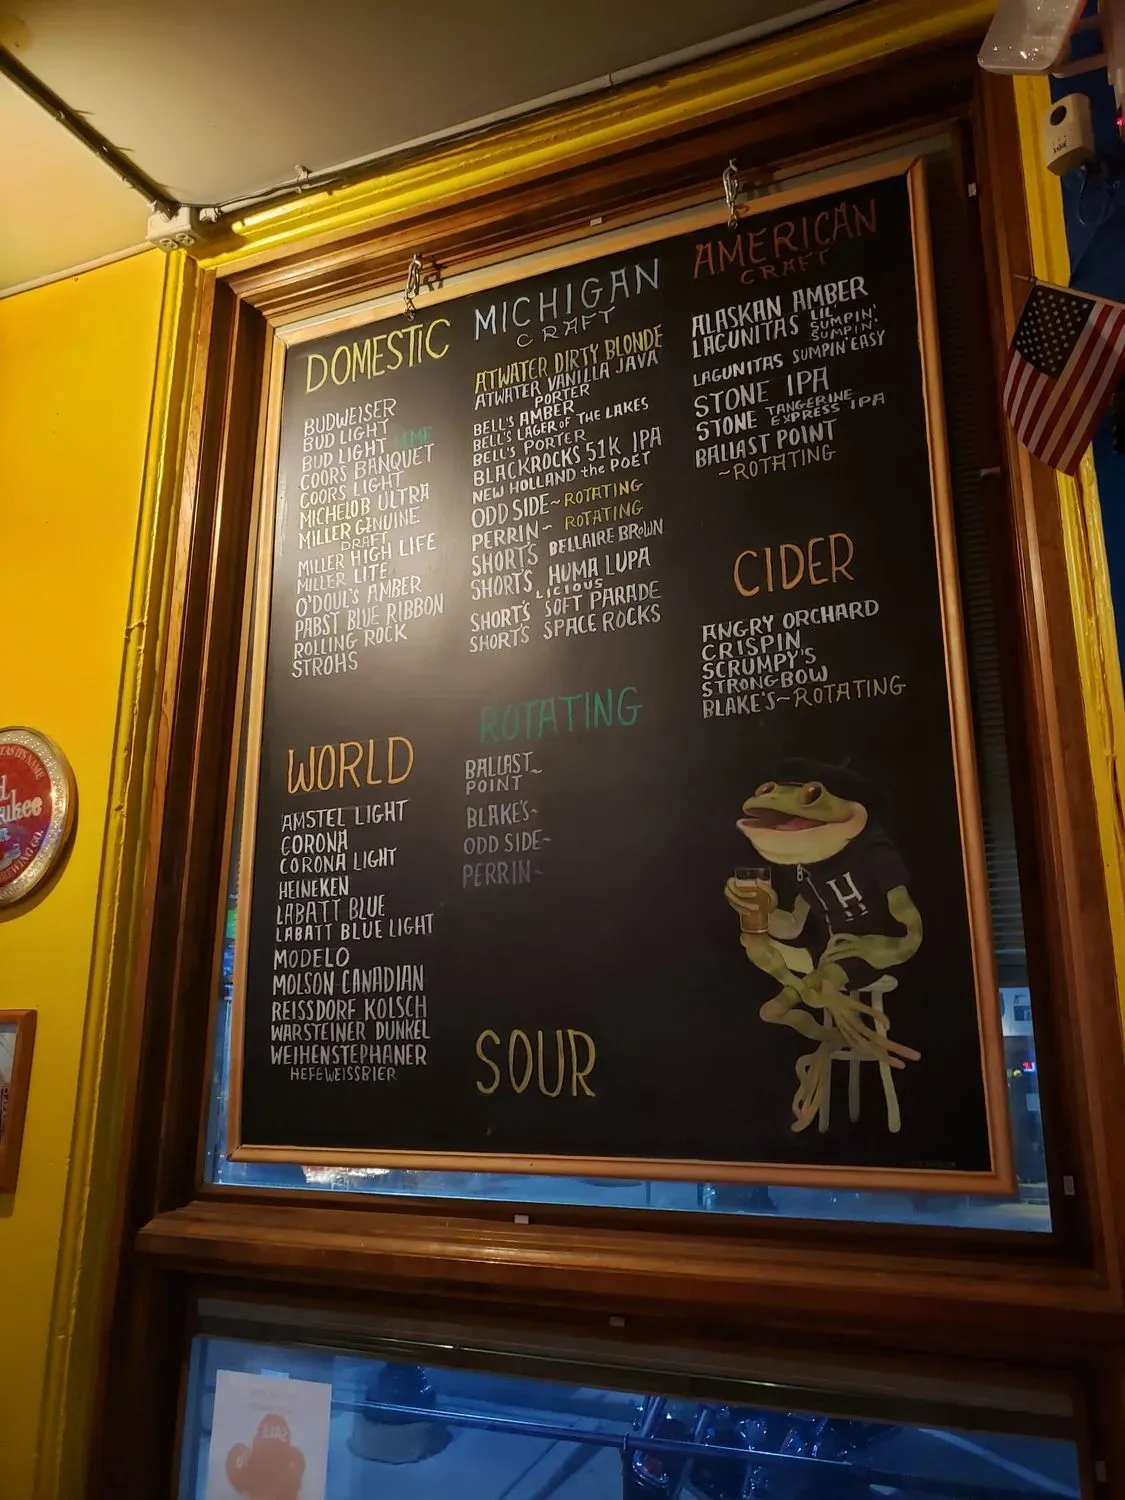 DOMESTIC
BUDWEISER
BUD LIGHT
BUD LIGHT LIME
COORS BANQUET
COORS LIGHT
MICHELOB ULTRA
MILLER GENUINE
DRAFT
MILLER HIGH LIFE
MILLER LITE
O'DOUL'S AMBER
PABST BLUE RIBBON
ROLLING ROCK
STROHS
WORLD
AMSTEL LIGHT
CORONA
CORONA LIGHT
HEINEKEN
LABATT BLUE
LABATT BLUE LIGHT
MODELO
MOLSON CANADIAN
REISSDORF KOLSCH
WARSTEINER DUNKEL
WEIHENSTEPHANER
HEFEWEISSBIER
MICHIGAN
CRAFT
ATWATER DIRTY BLONDE
ATWATER VANILLA JAVA
PORTER
BELL'S AMBER
BELL'S LAGER of THE LAKES
BELL'S PORTER
BLACKROCKS 51K IPA
NEW HOLLAND the POET
ODD SIDE~ ROTATING
PERRIN~ ROTATING
SHORT'S BELLAIRE BROWN
SHORT'S HUMA LUPA
LICIOUS
SHORT'S SOFT PARADE
SHORT'S SPACE ROCKS
ROTATING
BALLAST~
POINT
BLAKE'S~
ODD SIDE~
PERRIN~
SOUR
AMERICAN
CRAFT
ALASKAN AMBER
LAGUNITAS LIL'
SUMPIN'
SUMPIN'
LAGUNITAS SUMPIN' EASY
STONE IPA
STONE TANGERINE
EXPRESS IPA
BALLAST POINT
~ROTATING
CIDER
ANGRY ORCHARD
CRISPIN
SCRUMPY'S
STRONGBOW
BLAKE'S~ROTATING
H